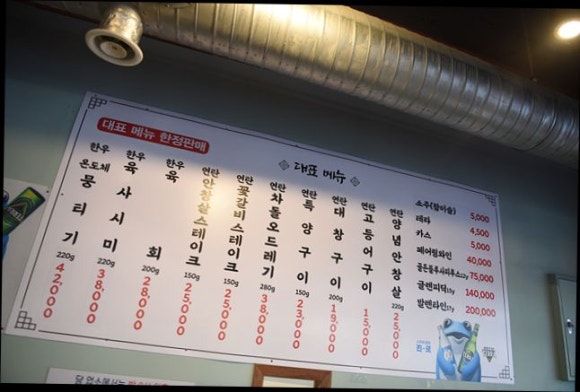 대표 메뉴 한정판매
대표 메뉴
한우 온도체 뭉티기 220g 42,000
한우 육사시미 220g 38,000
한우 육회 200g 28,000
연탄 안창살스테이크 150g 25,000
연탄 꽃갈비스테이크 150g 25,000
연탄 차돌오드레기 280g 38,000
연탄 특양구이 150g 23,000
연탄 대창구이 200g 19,000
연탄 고등어구이 15,000
연탄 양념안창살 220g 25,000
소주(참이슬) 5,000
테라 4,500
카스 5,000
페어링와인 40,000
골든블루사피루스12y 75,000
글렌피딕 140,000
발렌타인17y 200,000
당 업소에서는